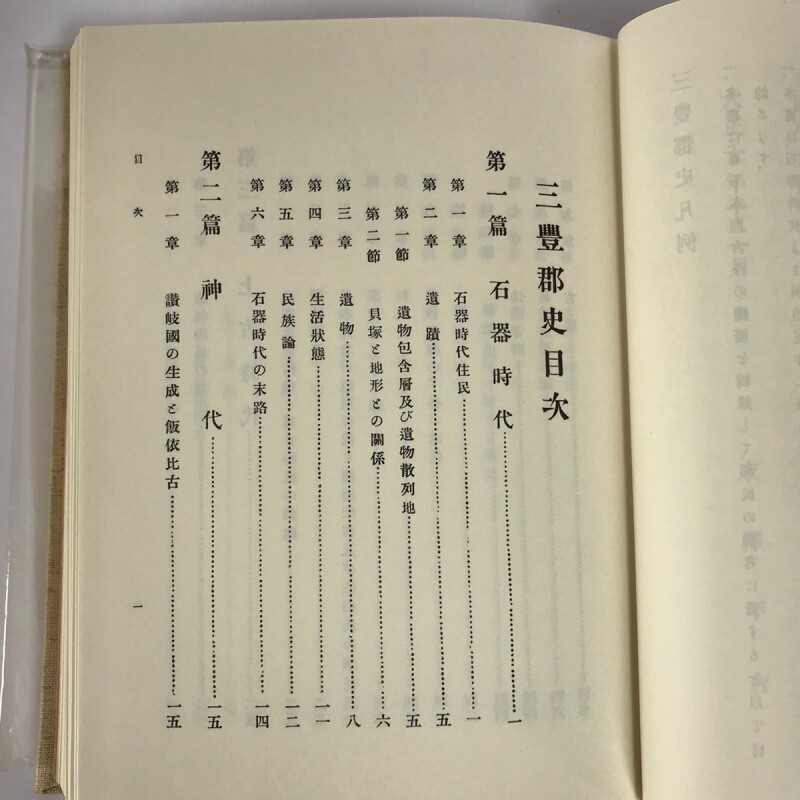 三豐郡史目次
第一篇 石器時代……一
第一章 石器時代住民……一
第二章 遺蹟……五
第一節 遺物包含層及び遺物散列地……五
第二節 貝塚と地形との關係……六
第三章 遺物……八
第四章 生活狀態……一一
第五章 民族論……一二
第六章 石器時代の末路……一四
第二篇 神代……一五
第一章 讃岐國の生成と飯依比古……一五
目次 一